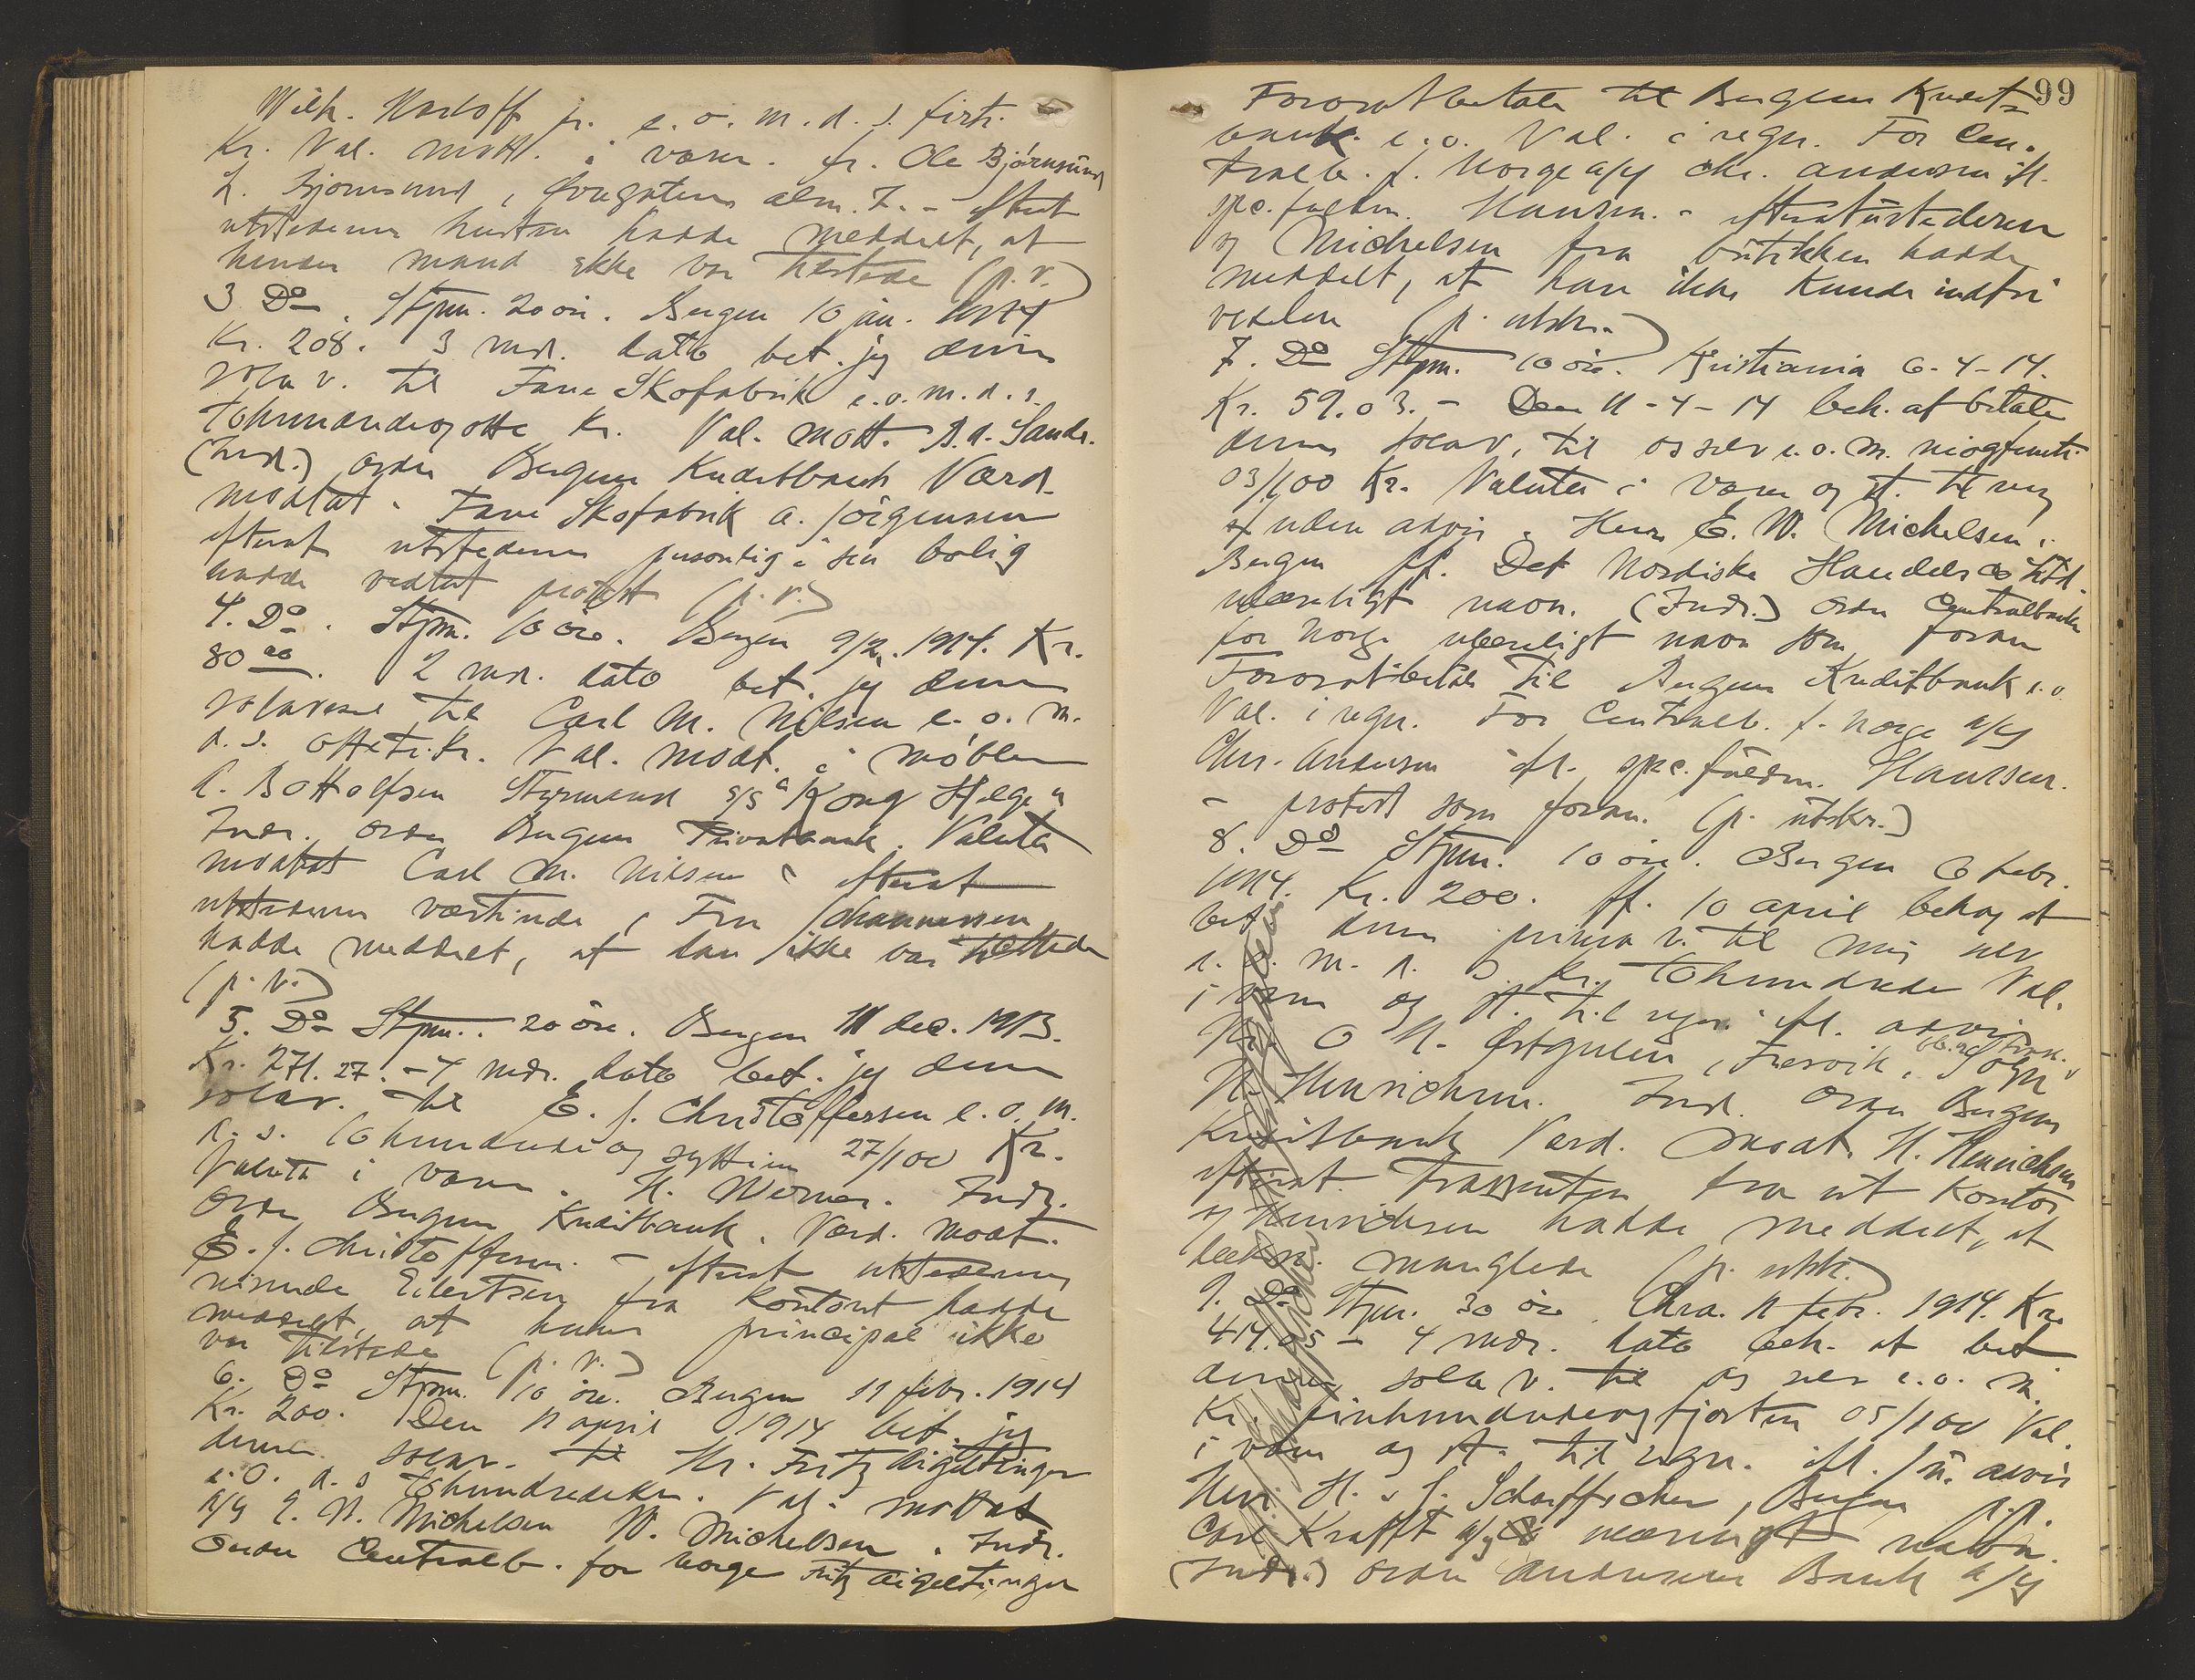 Wilh. Harloff jr. e. o. m. d. s. firti
Kr. Val. mott. i varer. fr. Ole Bjørnsund
L. Bjørnsund, alm. 7. - efterat
utstederens hustru hadde meddelt, at
hendes mand ikke var tilstede (p. v.)
3 Do. Stpm. 20 øre. Bergen 10 jan. 1914
Kr. 208. 3 md. dato bet. jeg denne
sola v. til Fane Skofabrik e. o. m. d. s.
tohundredeogotte Kr. Val. mott. B. A. Sandv.
(Ind.) ordre Bergens Kreditbank Værd.
modtat. Fane Skofabrik A. Jørgensen
efterat utstederen personlig i sin bolig
hadde vedtat protest (p. v.)
4. Do. Stpm. 10 øre. Bergen 9/2. 1914. Kr.
80 00. 2 md. dato bet. jeg denne
solaveksel til Carl M. Nilsen e. o. m.
d. s. otteti Kr. Val. modt. i møbler
A. Bottolfsen Styrmand s/s "Kong Helge"
Indr. ordre Bergens Privatbank. Valuta
modtat Carl M. Nilsen - efterat
utstederens værtinde, Fru Johannessen
hadde meddelt, at han ikke var tilstede
(p. v.)
5. Do Stpm. 20 øre. Bergen 11 dec. 1913.
Kr. 271.27. - 4 mdr. dato bet. jeg denne
solav. til E. J. Christoffersen e. o. m.
d. s. tohundrede og syttien 27/100 Kr.
Valuta i varer. H. Werner. Indr.
Ordre Bergens Kreditbank. Værd. modt.
E. J. Christoffersen. - efterat utstederens
Eilertsen fra kontoret hadde
meddelt, at hans principal ikke
var tilstede (p. v.)
6. Do Stpm. 10 øre. Bergen 11 febr. 1914
Kr. 200. Den 11 april 1914 bet. jeg
denne solav. til Hr. Fritz Aigeltinger
e. o. d. s tohundredekr. Val. mottat
A/S E. W. Michelsen W. Michelsen. Indr.
Ordre Centralb. for Norge Fritz Aigeltinger
99
Forovatbetale til Bergens Kredit=
bank. e. o. Val. i regn. For Cen.
tralb. f. Norge A/S Chr. Andersen ifl.
spc. fuldm. Hansen. - efterat utstederen
og Michelsen fra butikken hadde
meddelt, at han ikke kunde indfri
vekslen (p. utskr.)
7. Do Stpm. 10 øre. Kristiania 6-4-14.
Kr. 59.03. - Den 11-4-14 beh. at betale
denne solav, til os selv e. o. m. niogfemti
03/100 Kr. Valuta i varer og st. til regn
uden advis. Herr E. W. Michelsen i
Bergen pp. Det Nordiske Handels Co Ltd.
ulæseligt navn. (Indr.) Ordre Centralbanken
for Norge ulæseligt navn som foran
Forovatbetale til Bergens Kreditbank e. o.
Val. i regn. For Centralb. f. Norge A/S
Chr. Andersen ifl. spc. fuldm. Hanssen.
- protest som foran. (p. utskr.)
8. Do Stpm. 10 øre. Bergen 6 febr.
1914. Kr. 200. pp. 10 april behag at
bet denne prima v. til mig selv
e. o. m. d. s. Kr. tohundrede Val.
i varer og st. til regn. ifl. advis
Hr. O N. Østgulen, Fresvik, Sogn
H. Henrichsen. Ind. Ordre Bergens
Kreditbank Værd. modt. H. Henrichsen
efterat Trassenten fra sit kontor
og Henrichsen hadde meddelt, at
dækn. manglede (p. utsk.)
9. Do Stpm. 30 øre. Chra. 11 febr. 1914. Kr.
414.05 - 4 mdr. dato beh. at bet
denne sola v. til os selv e. o. m.
Kr. firehundredeogfjorten 05/100 Val.
i varer og st. til regn. ifl. /u. advis
Herr H. & J. Scharffscher, Bergen p.p.
Carl Krafft A/S ulæseligt navn.
(Indr.) ordre Andresens Bank A/S